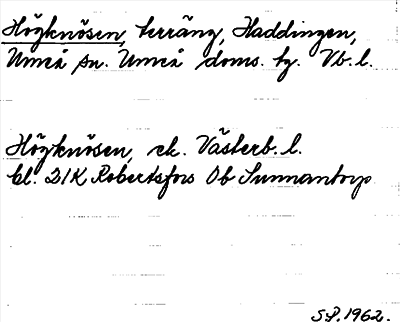 Högknösen, terräng, Haddingen,
Umeå sn. Umeå doms. hg. Vb. l.
Högknösen, ek. Västerb. l.
bl. 21K Robertsfors Ob Sunnantorp
S.P. 1962.